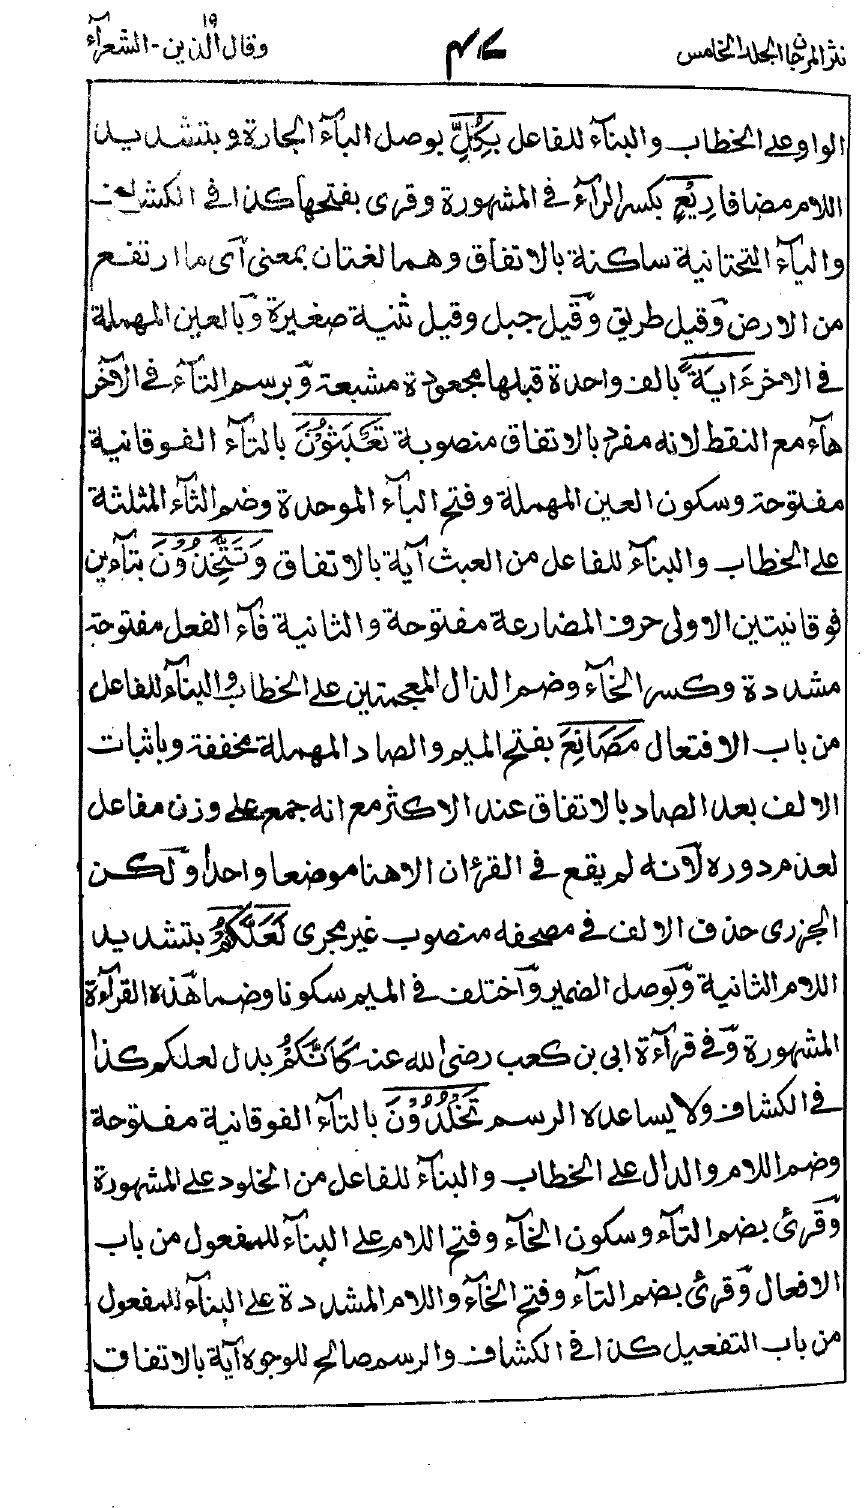 نثر المرجان الجلد الخامس
وقال الذين ١٩ - الشعرآء
الواو على الخطاب والبنآء للفاعل بِكُلِّ بوصل البآء الجارة وبتشديد
اللام مضافا رِيْعٍ بكسر الرآء فى المشهورة وقرى بفتحها كذا فى الكشاف
واليآء التحتانية ساكنة بالاتفاق وهما لغتان بمعنى اى ما ارتفع
من الارض وّقيل طريق وّقيل جبل وقيل ثنية صغيرة وّبالعين المهملة
فى الاخر ءَايَةً بالف واحدة قبلها مجعودة مشبعة وّبرسم التآء فى الآخر
هآء مع النقط لانه مفرد بالاتفاق منصوبة تَعْبَثُوْنَ بالتآء الفوقانية
مفتوحة وسكون العين المهملة وفتح البآء الموحدة وضم الثآء المثلثة
على الخطاب والبنآء للفاعل من العبث آية بالاتفاق وَتَتَّخِذُوْنَ بتآءين
فوقانيتين الاولى حرف المضارعة مفتوحة والثانية فآء الفعل مفتوحة
مشددة وكسر الخآء وضم الذال المعجمتين على الخطاب والبنآء للفاعل
من باب الافتعال مَصَانِعَ بفتح الميم والصاد المهملة مخففة وباثبات
الالف بعد الصاد بالاتفاق عند الاكثر مع انه جمع على وزن مفاعل
لعدم دوره لآنه لم يقع فى القرءان الا هنا موضعا واحدا وّلكن
الجزرى حذف الالف فى مصحفه منصوب غير مجرى لَعَلَّكُمْ بتشديد
اللام الثانية وّبوصل الضمير وّاختلف فى الميم سكونا وضما هّذه القرآءة
المشهورة وّفى قرآءة ابى بن كعب رضى الله عنه كَاَنَّكُمْ بدل لعلكم كذا
فى الكشاف ولا يساعده الرسم تَخْلُدُوْنَ بالتآء الفوقانية مفتوحة
وضم اللام والدال على الخطاب والبنآء للفاعل من الخلود على المشهورة
وّقرئ بضم التآء وسكون الخآء وفتح اللام على البنآء للمفعول من باب
الافعال وّقرئ بضم التآء وفتح الخآء واللام المشددة على البنآء للمفعول
من باب التفعيل كذا فى الكشاف والرسم صالح للوجوه آية بالاتفاق